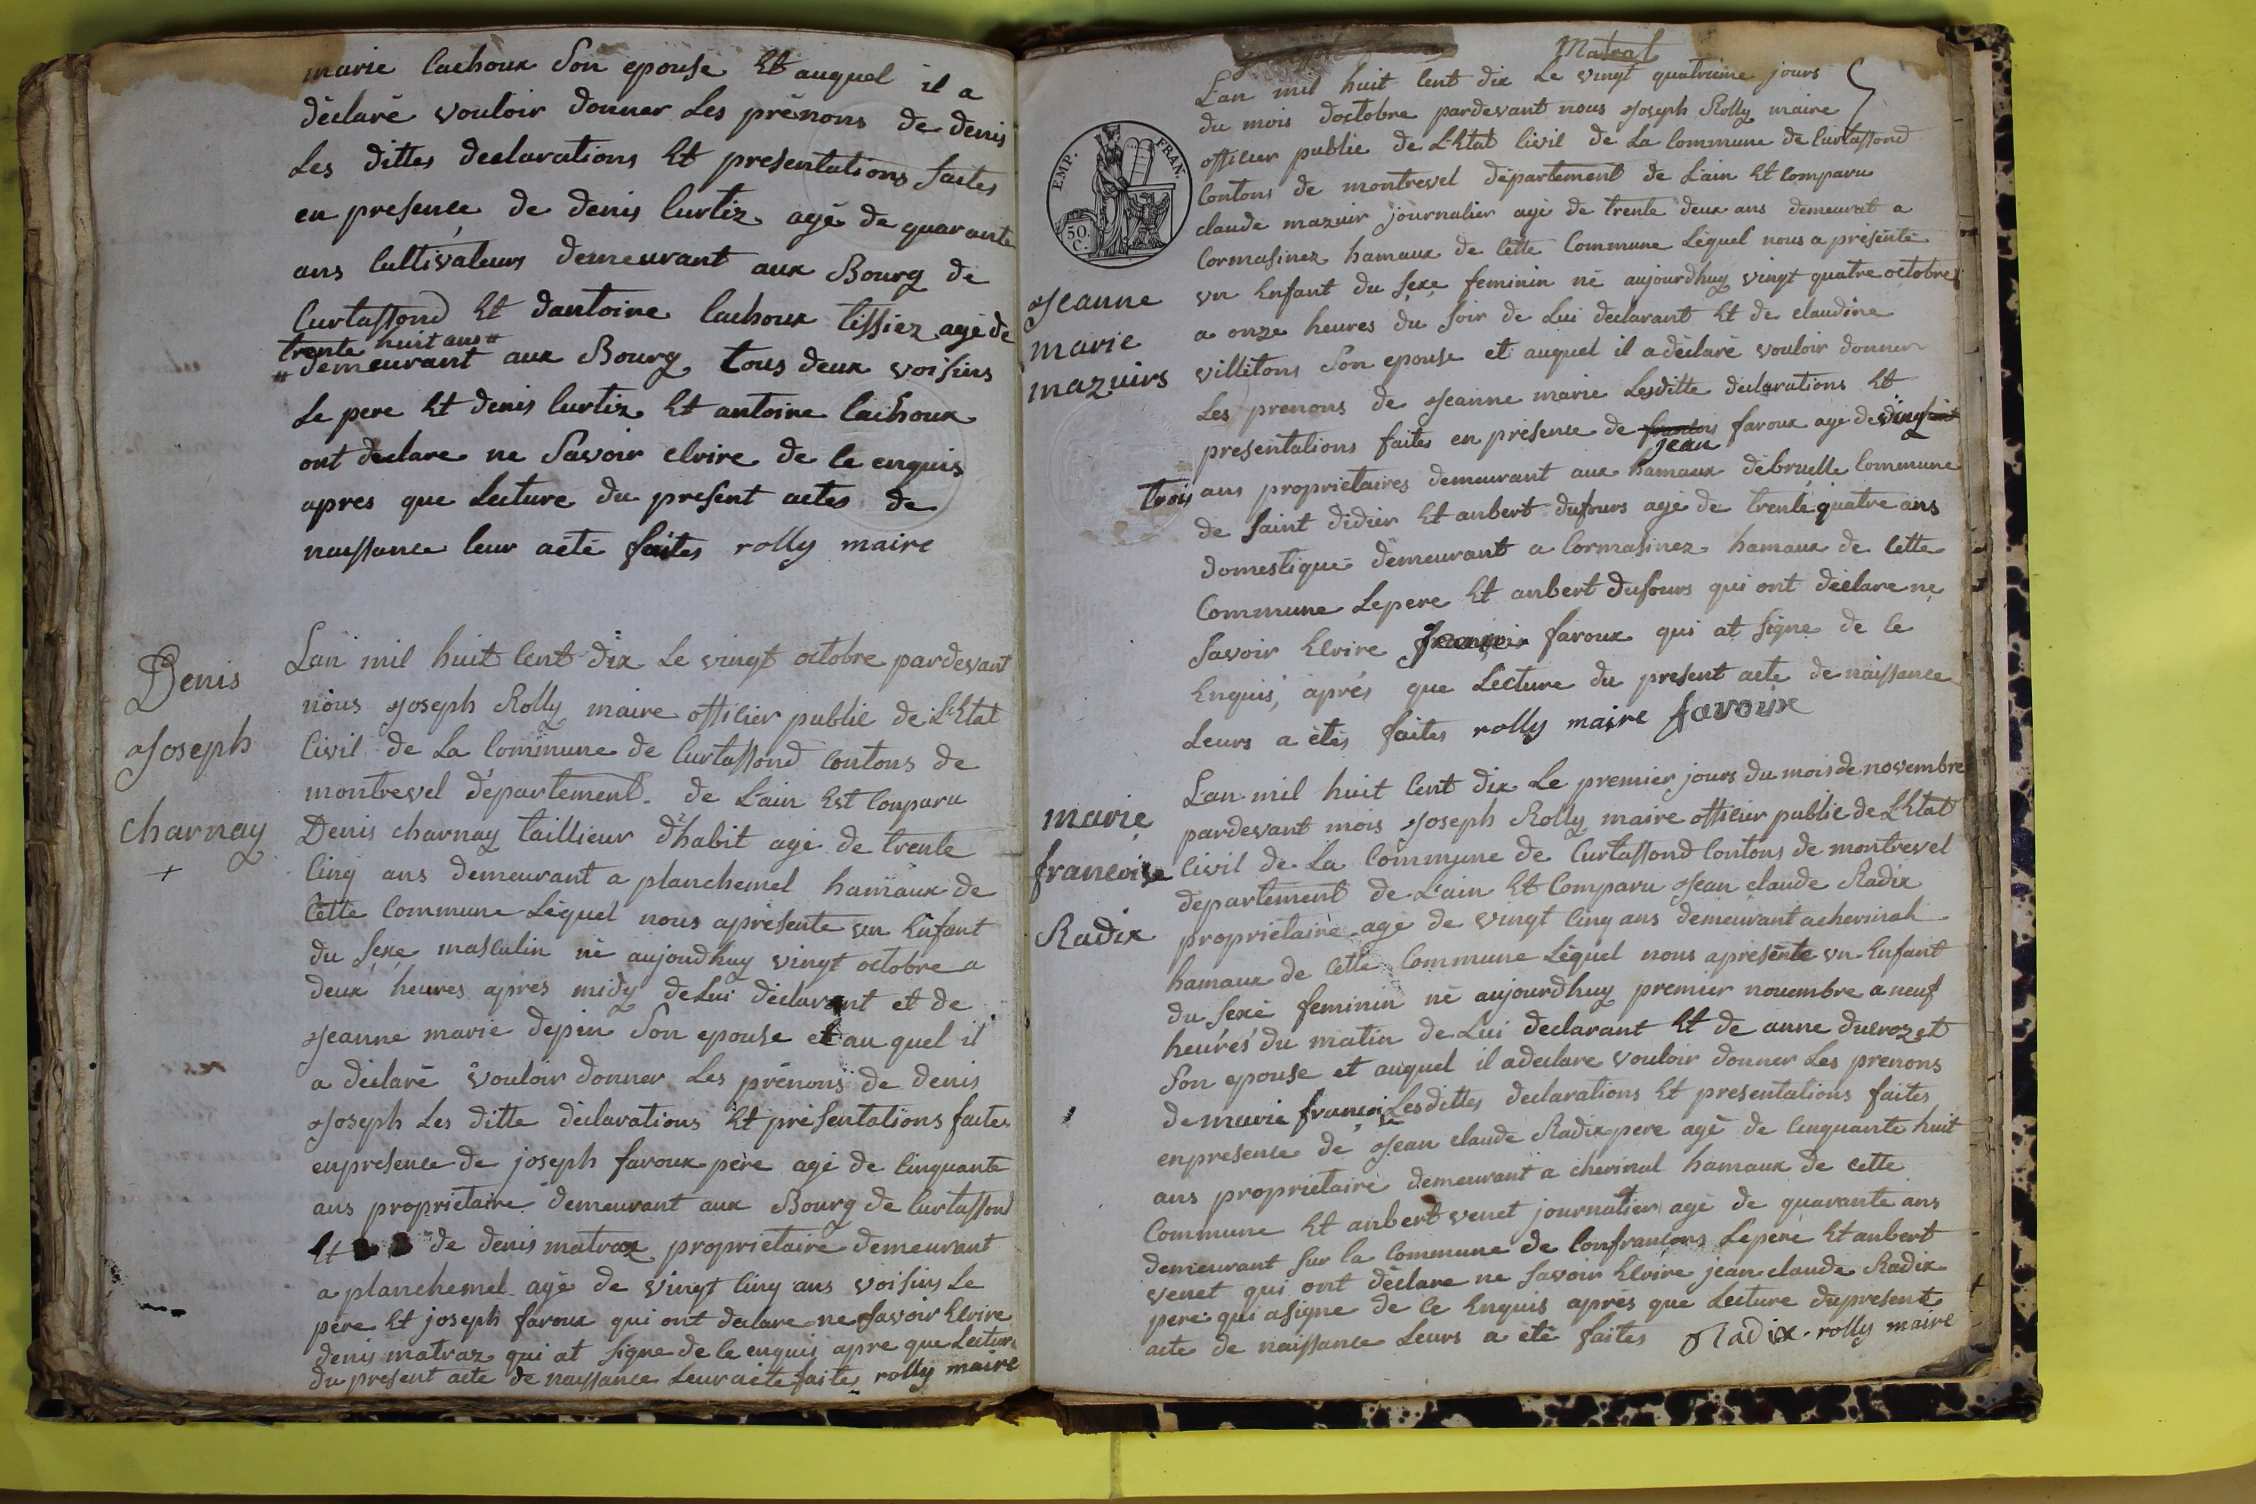 marie Cachoux Son epouse Et auquel il a
déclaré vouloir donner Les prénons de denis
Les dittes declarations Et presentations faites
en presence de denis Curtiz agé de quarante
ans Cultivateurs demeurant aux Bourg de
Curtassond Et dantoine Cachoux tissiez agé de
trente huit ans
demeurant aux Bourg tous deux voisins
Le pere Et denis Curtiz Et antoine Cachoux
ont declare ne Savoir elrire de ce enquis
apres que Lecture du present actes de
naissance leur aété faites rolly maire
Denis
Joseph
charnay
+
Lan mil huit Cent dix Le vingt octobre pardevant
nous Joseph Rolly maire officier public de LEtat
Civil de La Commune de Curtassond Contons de
montrevel département de Lain Est Conparu
Denis charnay taillieur d'habit agé de trente
Cinq ans demeurant a planchemel hamaux de
Cette Commune Léquel nous aprésente un Enfant
du Sexe masculin né aujourdhuy vingt octobre a
deux heures aprés midy de Lui déclarant et de
Jeanne marie depin Son epouse et au quel il
a déclaré vouloir donner Les prénons de denis
Joseph Les ditte déclarations Et présentations faites
enpresence de joseph faroux père agé de Cinquante
ans proprietaire demeurant aux Bourg de Curtassond
Et de denis matraz proprietaire demeurant
a planchemel agé de vingt Cinq ans voisins Le
père Et joseph faroux qui ont declare ne Savoir Elrire
denis matraz qui at Signe de Ce enquis apre que Lecture
du present acte de naissance Leur aété faites rolly maire
Matral
EMP. FRAN.
50.
C.
Lan mil huit Cent dix Le vingt quatrieme jours
du mois doctobre pardevant nous Joseph Rolly maire
officier public de LEtat Civil de La Commune de Curtassond
Contons de montrevel département de Lain Et Comparu
claude mazuir journalier agé de trente deux ans demeurat a
Cormasinez hamaux de Cette Commune Léquel nous a présenté
vn Enfant du Sexe feminin né aujourdhuy vingt quatre octobre
a onze heures du Soir de Lui declarant Et de claudine
villitons Son epouse et auquel il a déclaré vouloir donner
Jeanne
marie
mazuirs
Les prenons de Jeanne marie Lesditte déclarations Et
presentations faites en présence de francois faroux agé de vingt
jean
trois ans propriétaires demeurant aux hamaux débruelle Commune
de Saint didier Et anbert dufours agé de trente quatre ans
domestique demeurant a Cormasinez hamaux de Cette
Commune Lepere Et anbert dufours qui ont déclare ne
Savoir Elrire faroux qui at Signe de Ce
Enquis, aprés que Lecture du present acte de naissance
Leurs a étés faites rolly maire faroux
marie
francoise
Radix
Lan mil huit Cent dix Le premier jours du mois de novembre
pardevant mois Joseph Rolly maire officier public de LEtat
Civil de La Commune de Curtassond Contons de montrevel
département de Lain Et Comparu Jean claude Radix
propriétaire agé de vingt Cinq ans demeurant acherinal
hamaux de Cette Commune Léquel nous aprésente vn Enfant
du Sexe feminin né aujourdhuy premier novembre a neuf
heures du matin de Lui declarant Et de anne ducrozet
Son epouse et auquel il adeclare vouloir donner Les prenons
de marie françoise Lesdittes declarations Et presentations faites
enpresence de Jean claude Radix pere agé de Cinquante huit
ans proprietaire demeurant a cherinal hamaux de cette
Commune Et anbert venet journalier agé de quarante ans
demeurant Sur la Commune de Confrancons Lepere Et anbert
venet qui ont déclare ne Savoir Elrire jean claude Radix
pere qui asigne de Ce Enquis aprés que Lecture dupresent
acte de naissance Leurs a été faites Radix rolly maire